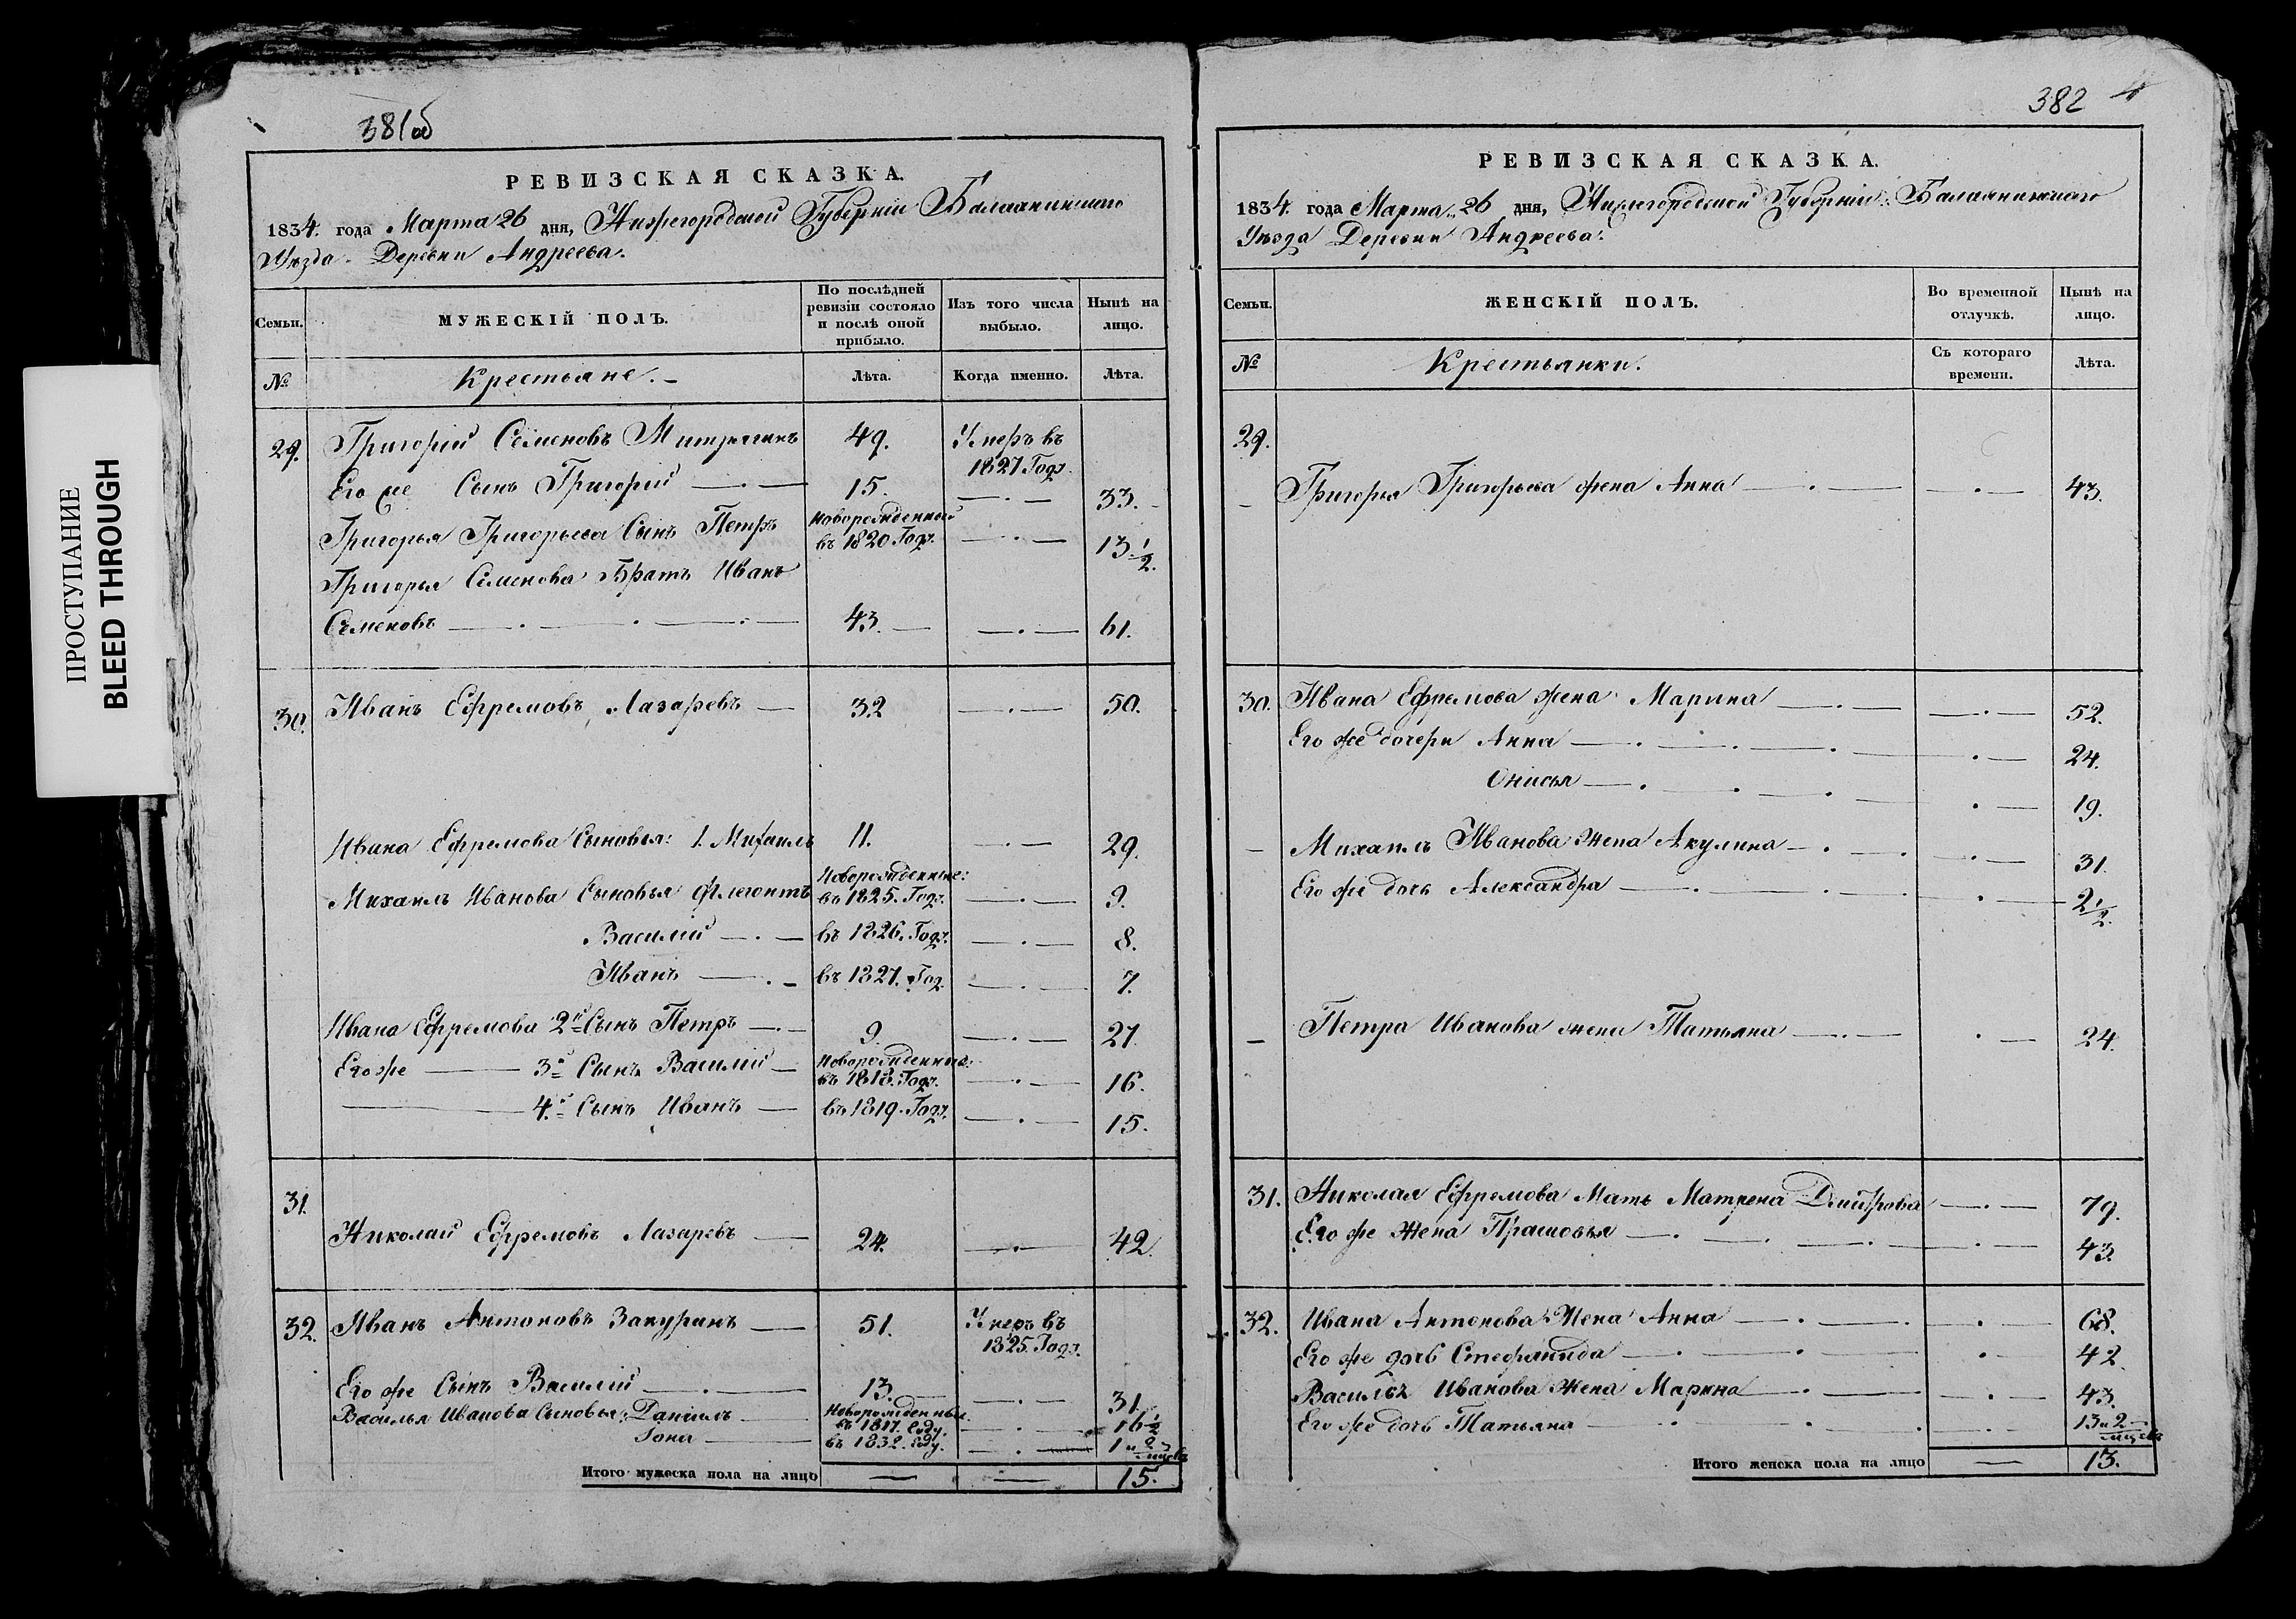 ПРОСТУПАНИЕ
BLEED THROUGH
381об
РЕВИЗСКАЯ СКАЗКА.
1834. года Марта 26 дня, Нижегородской Губерніи Балахнинскаго
Уѣзда. Деревни Андреева.
Семьи.
МУЖЕСКІЙ ПОЛЪ.
По послѣдней ревизіи состояло и послѣ оной прибыло.
Изъ того числа выбыло.
Нынѣ на лицо.
№
Крестьяне.
Лѣта.
Когда именно.
Лѣта.
29. Григорій Семеновъ 49. Умеръ въ 1827 Годѵ.
Его же Сынъ Григорій 15. 33.
Григорья Григорьева Сынъ Петръ Новорожденный въ 1820 Годѵ. 13 1/2.
Григорья Семенова Братъ Иванъ
Семеновъ 43. 61.
30. Иванъ Ефремовъ Лазаревъ 32 50.
Ивана Ефремова Сыновья: 1. Михаилъ 11. 29.
Михаилъ Иванова Сыновья Флегонтъ Новорожденные: въ 1825. Годѵ. 9.
Василій въ 1826. Годѵ. 8.
Иванъ въ 1827. Год. 7.
Ивана Ефремова 2й Сынъ Петръ 9. 27.
Его же 3й Сынъ Василій Новорожденные: въ 1818. Годѵ. 16.
4й Сынъ Иванъ въ 1819. Годѵ. 15.
31.
Николай Ефремовъ Лазаревъ 24. 42.
32. Иванъ Антоновъ Закуринъ 51. Умеръ въ 1825. Годѵ.
Его же Сынъ Василій 13. 31.
Василья Иванова Сыновья: Даніилъ Новорожденные. въ 1817. Году. 16 1/2
Іона въ 1832. Году. 1 и
Итого мужеска пола на лицо 15.
382 4
РЕВИЗСКАЯ СКАЗКА.
1834. года Марта 26 дня, Нижегородской Губерніи Балахнинскаго
Уѣзда Деревни Андреева.
Семьи.
ЖЕНСКІЙ ПОЛЪ.
Во временной отлучкѣ.
Нынѣ на лицо.
№
Крестьянки.
Съ котораго времени.
Лѣта.
29.
Григорья Григорьева жена Анна 43.
30. Ивана Ефремова жена Марина 52.
Его же дочери Анна 24.
Онисья 19.
Михаилъ Иванова Жена Акулина 31.
Его же дочь Александра 2 1/2.
Петра Иванова жена Татьяна 24.
31. Николая Ефремова Мать Матрена Дмитрова 79.
Его же Жена Прасковья 43.
32. Ивана Антонова Жена Анна 68.
Его же дочь Стефанида 42.
Василья Иванова Жена Марина 43.
Его же дочь Татьяна 13 и 2 мцевъ
Итого женска пола на лицо 13.